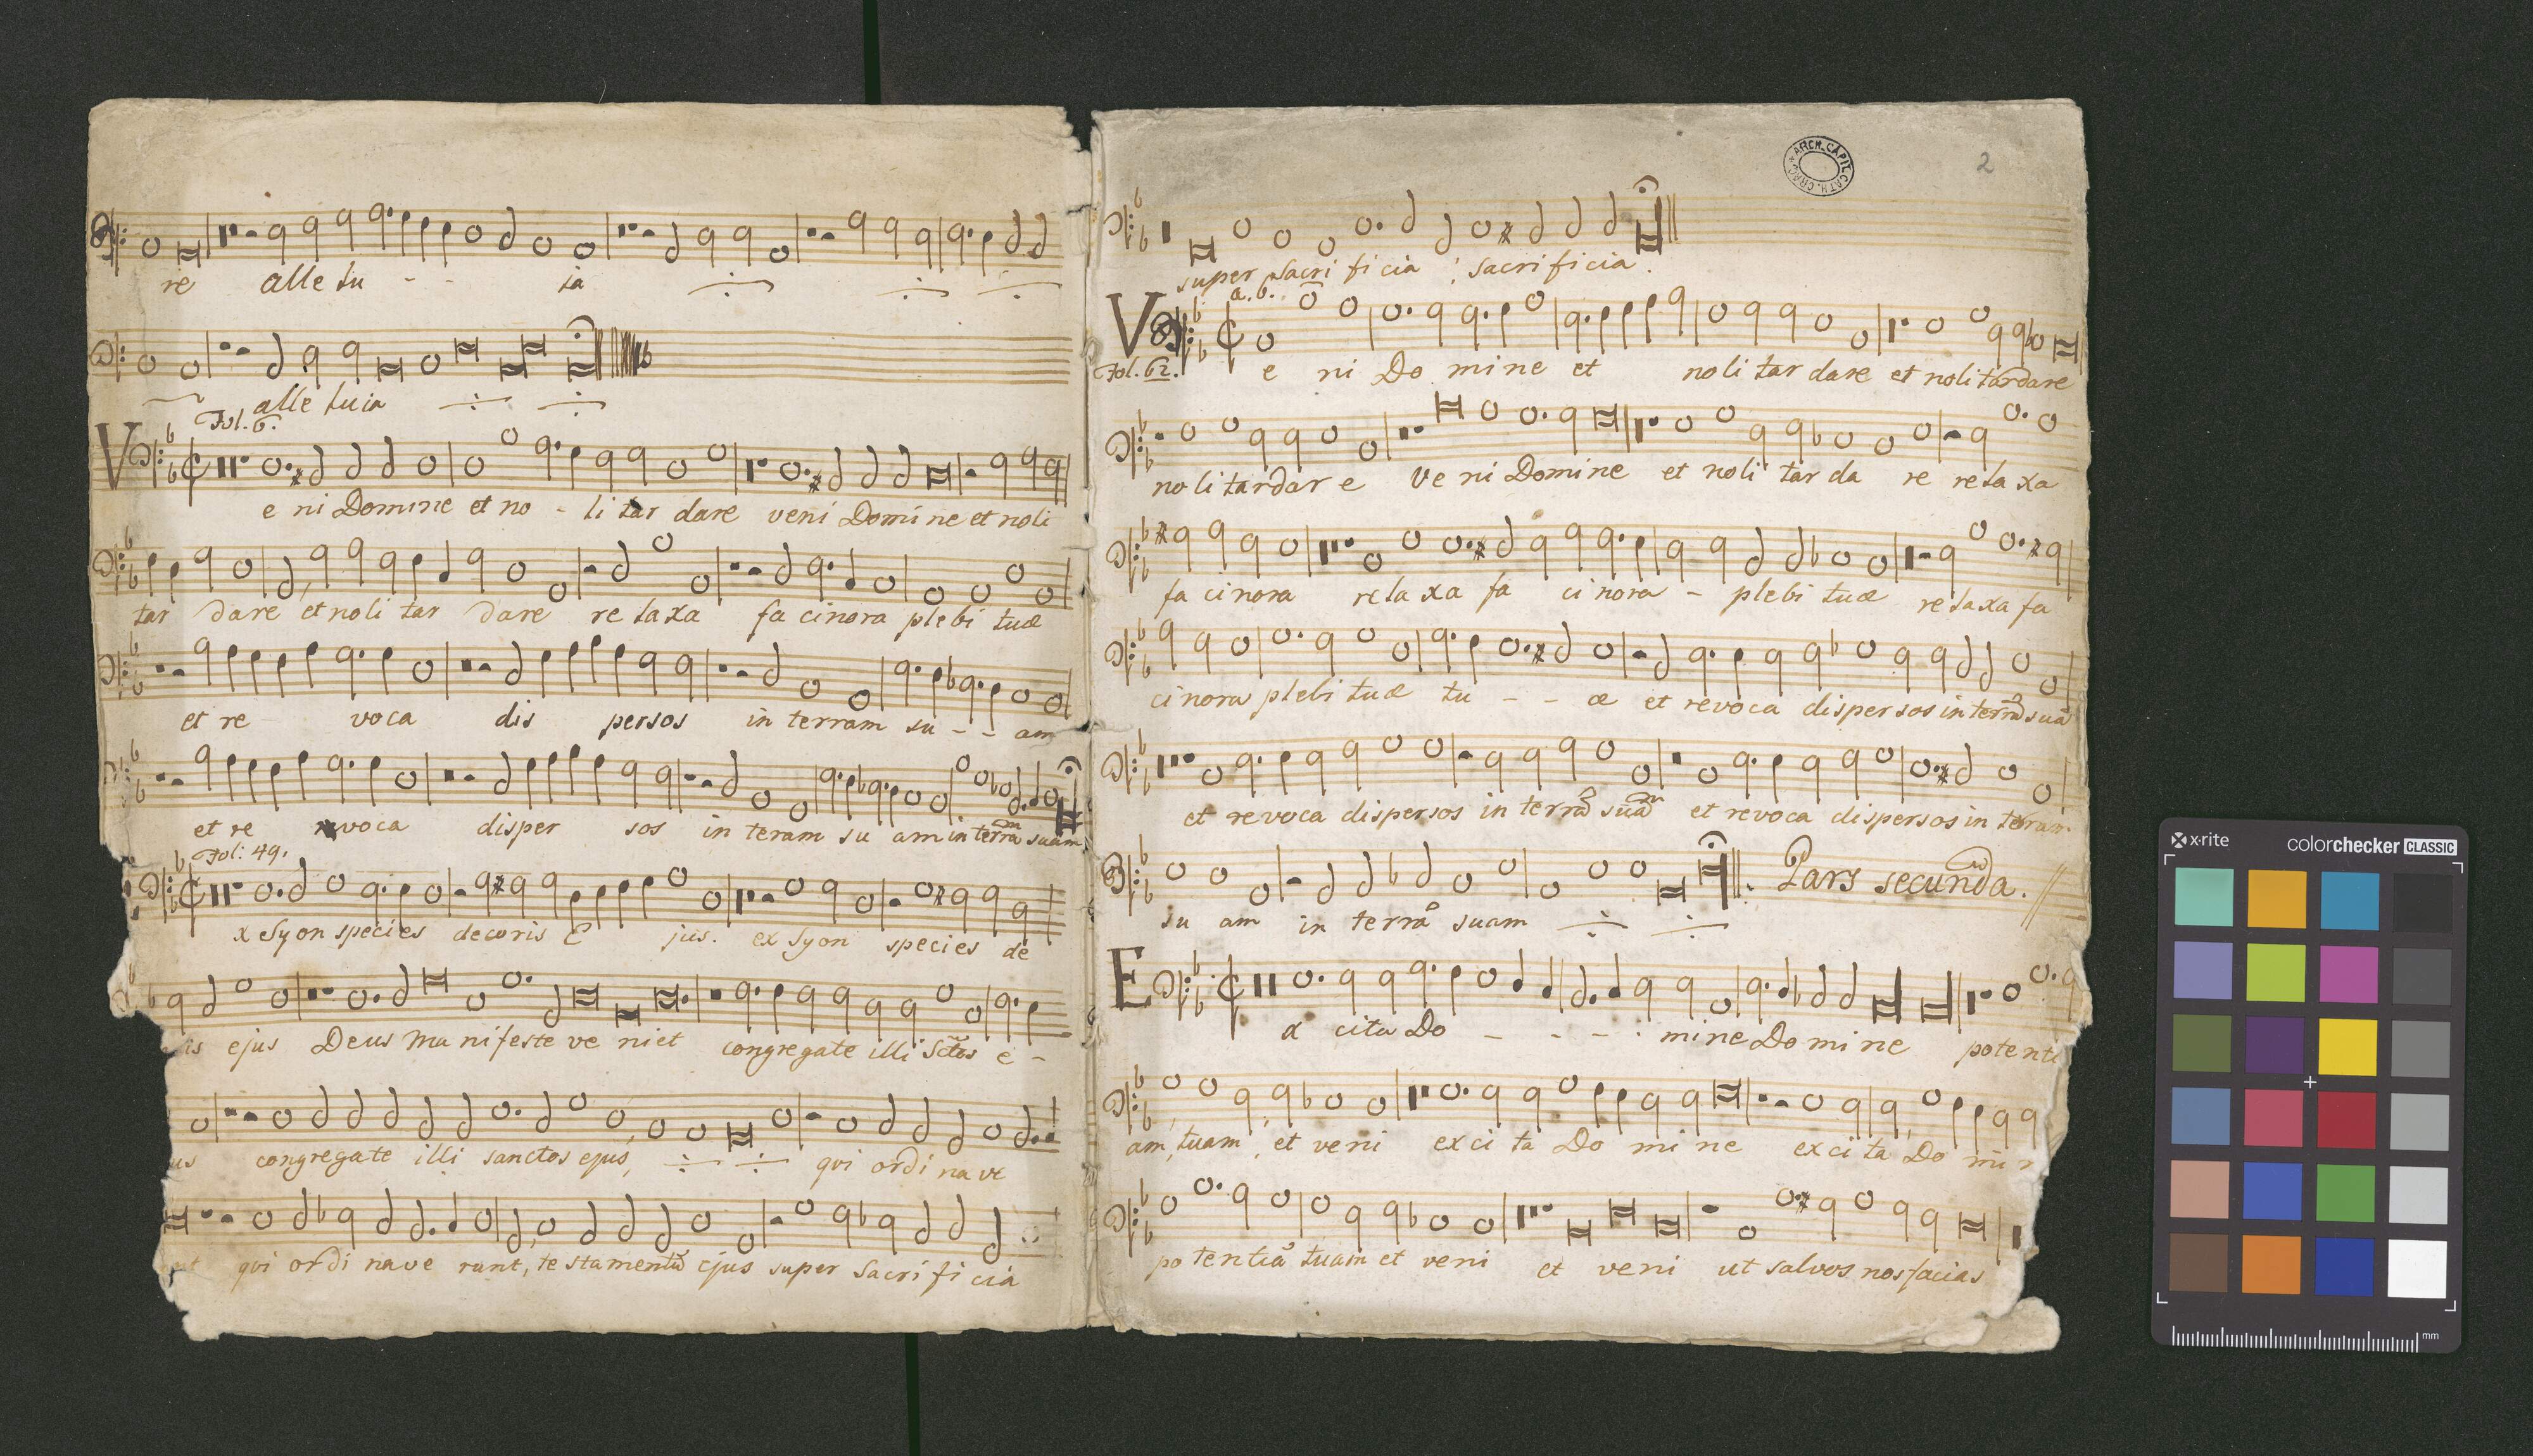 re alle lu - - ia
alle luia
Fol. 6.
V e ni Domine et no - li tar dare veni Domi ne et noli
tar dare et noli tar dare re laxa fa cinora plebi tuæ
et re voca dis persos in terram su - - am
et re voca disper sos in teram su am in terrā suam
Fol: 49.
x Syon species decoris E jus. ex Syon species de
is ejus Deus ma nifeste ve niet congregate illi Sctos e -
us congregate illi sanctos ejus, qvi ordi na ve
qvi ordi nave runt, te stamentū ejus super Sacri fi cia
ARCH. CAPIT. CATH. CRAC.
2
super Sacri fi cia : sacrificia.
a. 6.
V e ni Do mi ne et noli tar dare et noli tardare
Fol. 62.
no li tardar e ve ni Domine et noli tar da re re la xa
fa ci nora re la xa fa ci nora - plebi tuæ re laxa fa
ci nora plebi tuæ tu - - æ et revoca disper sos in terrā suā
et revoca dispersos in terrā suā et revoca dispersos in terram
su am in terrā suam Pars secunda.
E x cita Do - - - mine Do mi ne potenti
am, tuam, et veni ex ci ta Do mi ne ex ci ta Do mi n
po tentiā tuam et veni et veni ut salvos nos facias
x-rite colorchecker CLASSIC
mm